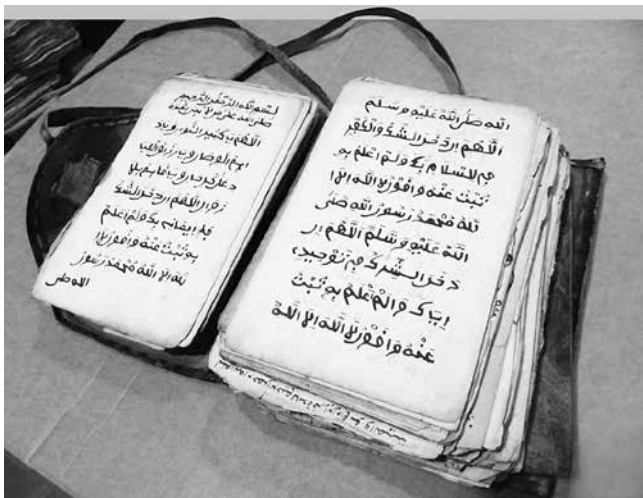 بسم الله الرحمن الرحيم
صلى الله على من لا نبي بعده
اللهم يا كثير النور وياد
ايم
د على كل حال ويا قايم بلا
زوال اللهم ان دخل الشك
في ايمانى بك ولم اعلم
به تبت عنه واقول لا
اله الا الله محمد رسور
الله صلى
الله صلى الله عليه وسلم
اللهم ان دخل الشك والكفر
في اسلام بك ولم اعلم به
تبت عنه واقول لا اله الا
لله محمد رسور الله صلى
الله عليه وسلم اللهم ان
دخل الشرك في توحيد
اياك ولم اعلم به تبت
عنه واقول لا اله الا الله